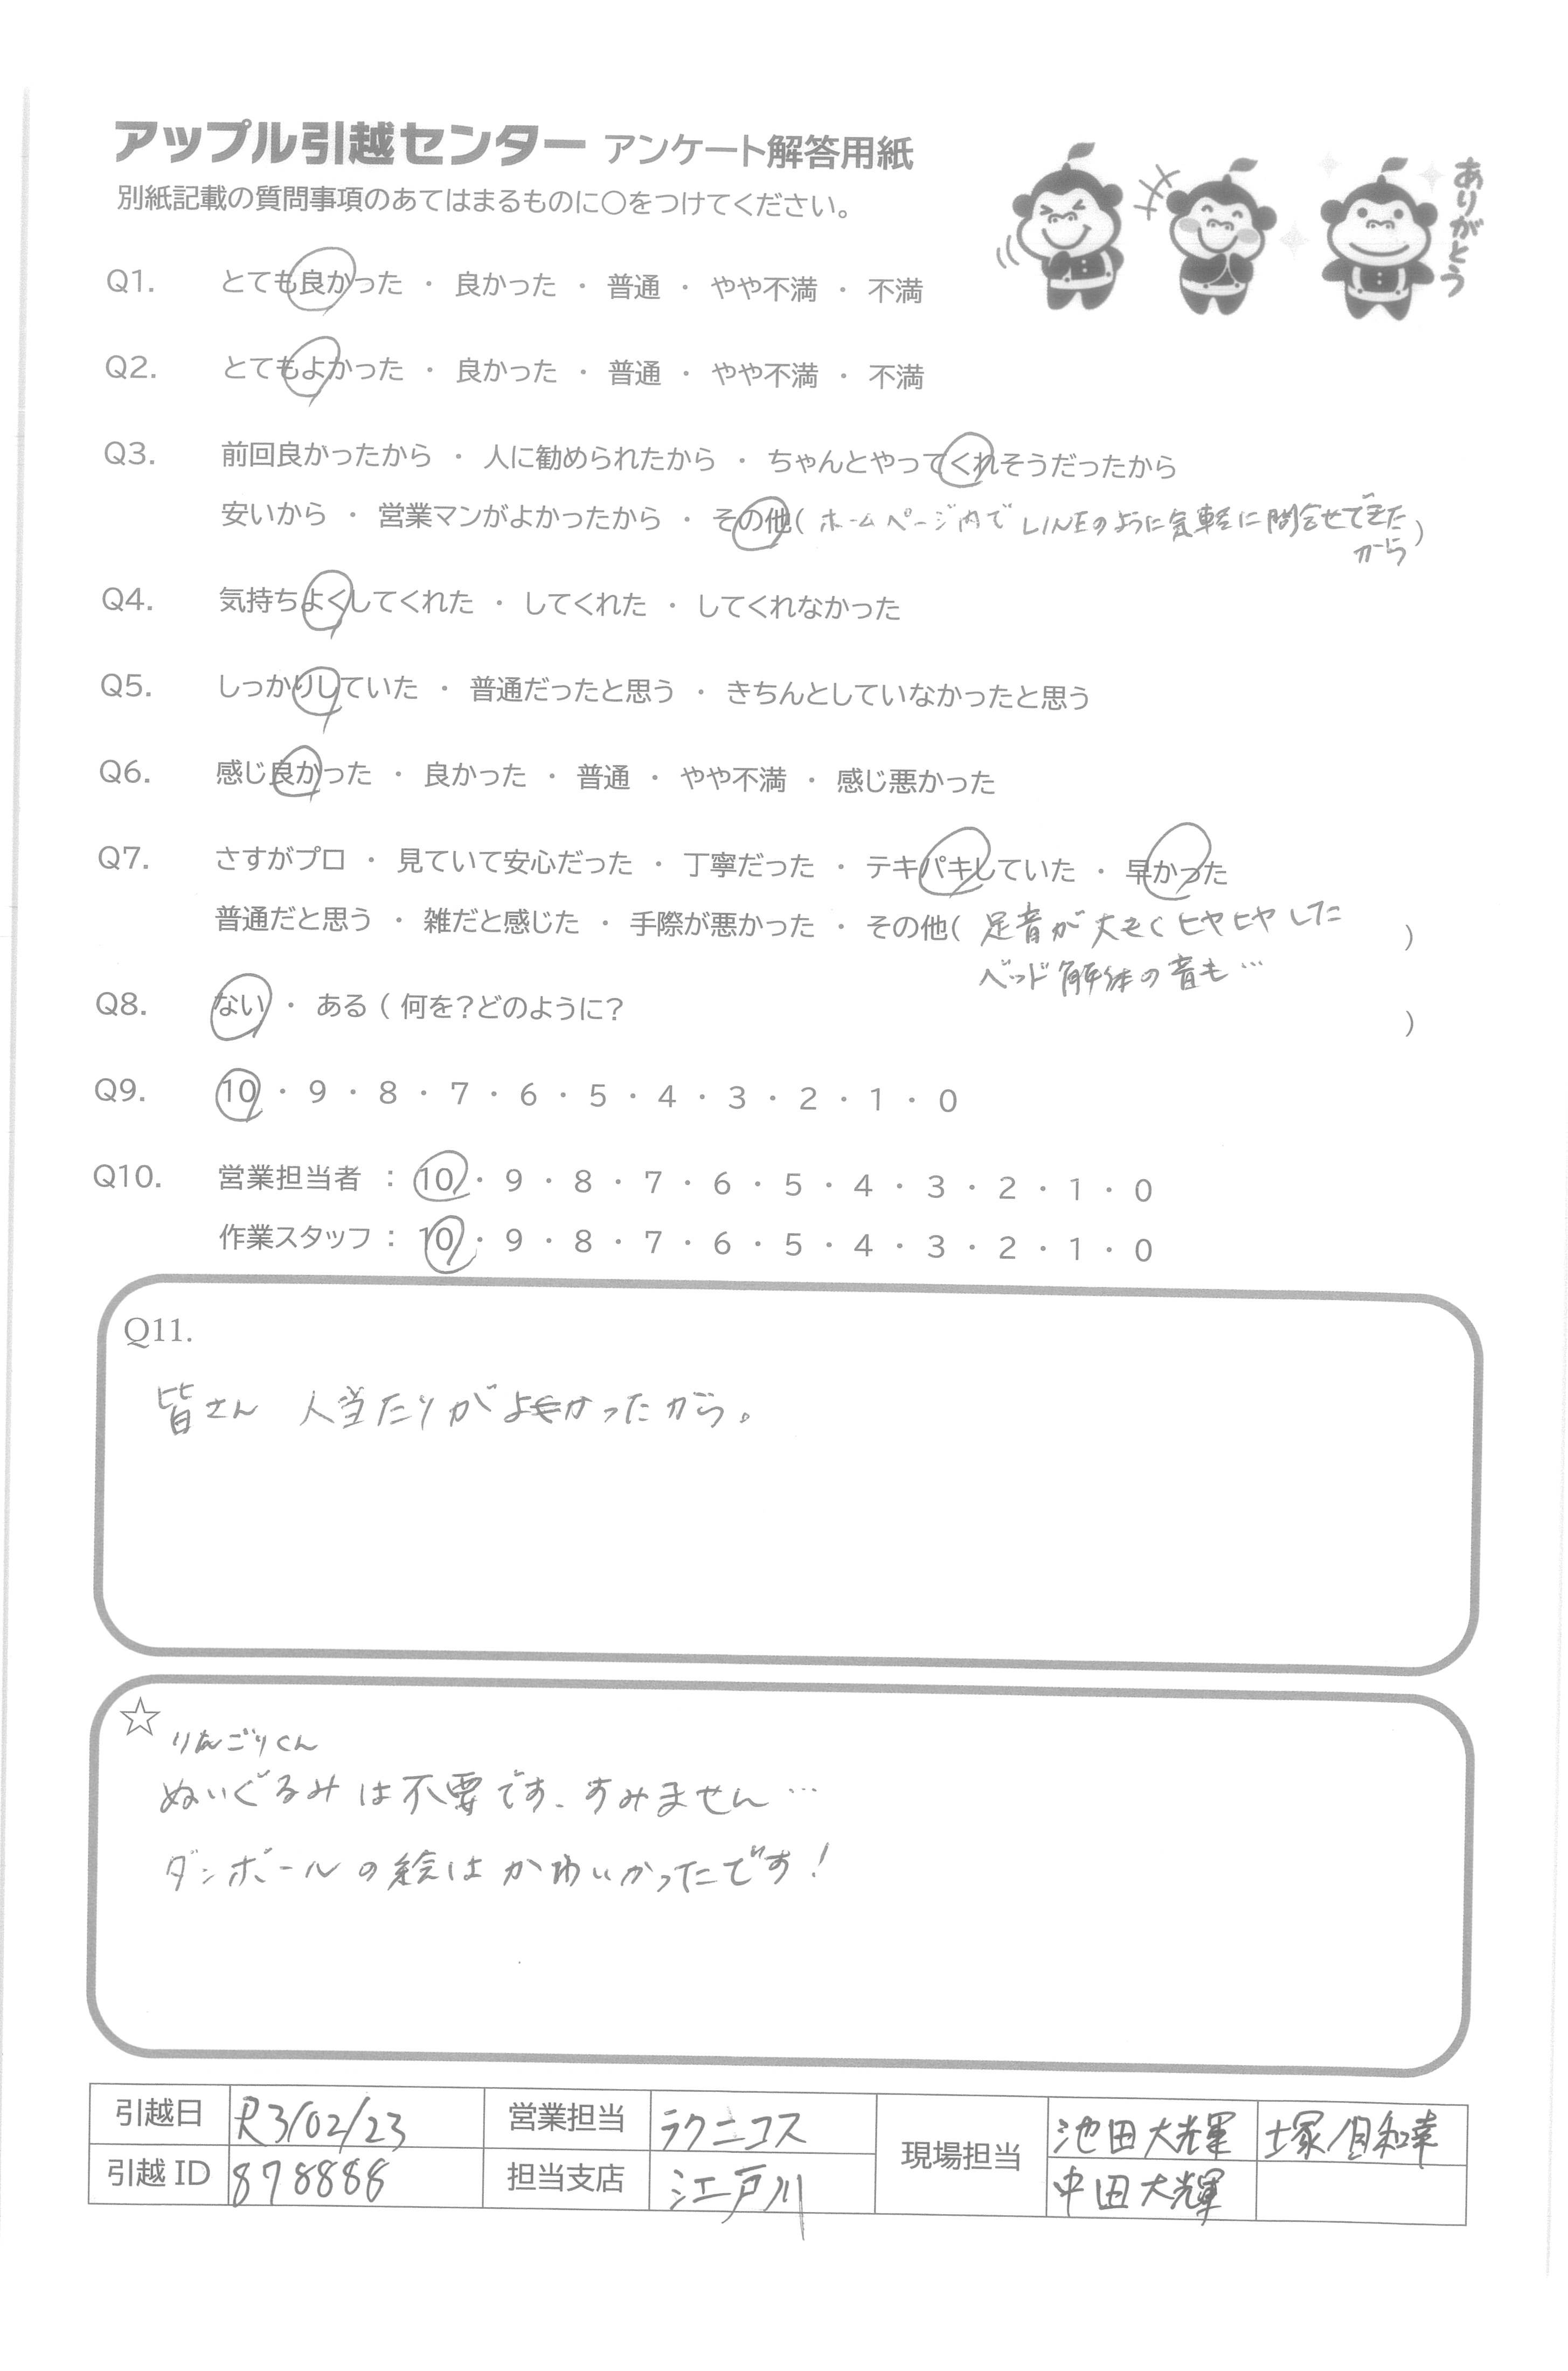 アップル引越センター アンケート解答用紙
別紙記載の質問事項のあてはまるものに○をつけてください。
ありがとう
Q1. とても良かった ・ 良かった ・ 普通 ・ やや不満 ・ 不満
Q2. とてもよかった ・ 良かった ・ 普通 ・ やや不満 ・ 不満
Q3. 前回良かったから ・ 人に勧められたから ・ ちゃんとやってくれそうだったから
安いから ・ 営業マンがよかったから ・ その他( ホームページ内でLINEのように気軽に問合せできた
から )
Q4. 気持ちよくしてくれた ・ してくれた ・ してくれなかった
Q5. しっかりしていた ・ 普通だったと思う ・ きちんとしていなかったと思う
Q6. 感じ良かった ・ 良かった ・ 普通 ・ やや不満 ・ 感じ悪かった
Q7. さすがプロ ・ 見ていて安心だった ・ 丁寧だった ・ テキパキしていた ・ 早かった
普通だと思う ・ 雑だと感じた ・ 手際が悪かった ・ その他( 足音が大きくヒヤヒヤした )
ベッド解体の音も…
Q8. ない ・ ある ( 何を?どのように? )
Q9. 10 ・ 9 ・ 8 ・ 7 ・ 6 ・ 5 ・ 4 ・ 3 ・ 2 ・ 1 ・ 0
Q10. 営業担当者 : 10 ・ 9 ・ 8 ・ 7 ・ 6 ・ 5 ・ 4 ・ 3 ・ 2 ・ 1 ・ 0
作業スタッフ : 10 ・ 9 ・ 8 ・ 7 ・ 6 ・ 5 ・ 4 ・ 3 ・ 2 ・ 1 ・ 0
Q11.
皆さん 人当たりがよかったから。
☆
りんごりくん
ぬいぐるみは不要です、すみません…
ダンボールの絵はかわいかったです!
引越日 R3/02/23 営業担当 ラクニコス 現場担当 池田大輝 塚
引越ID 878888 担当支店 江戸川 中田大輝